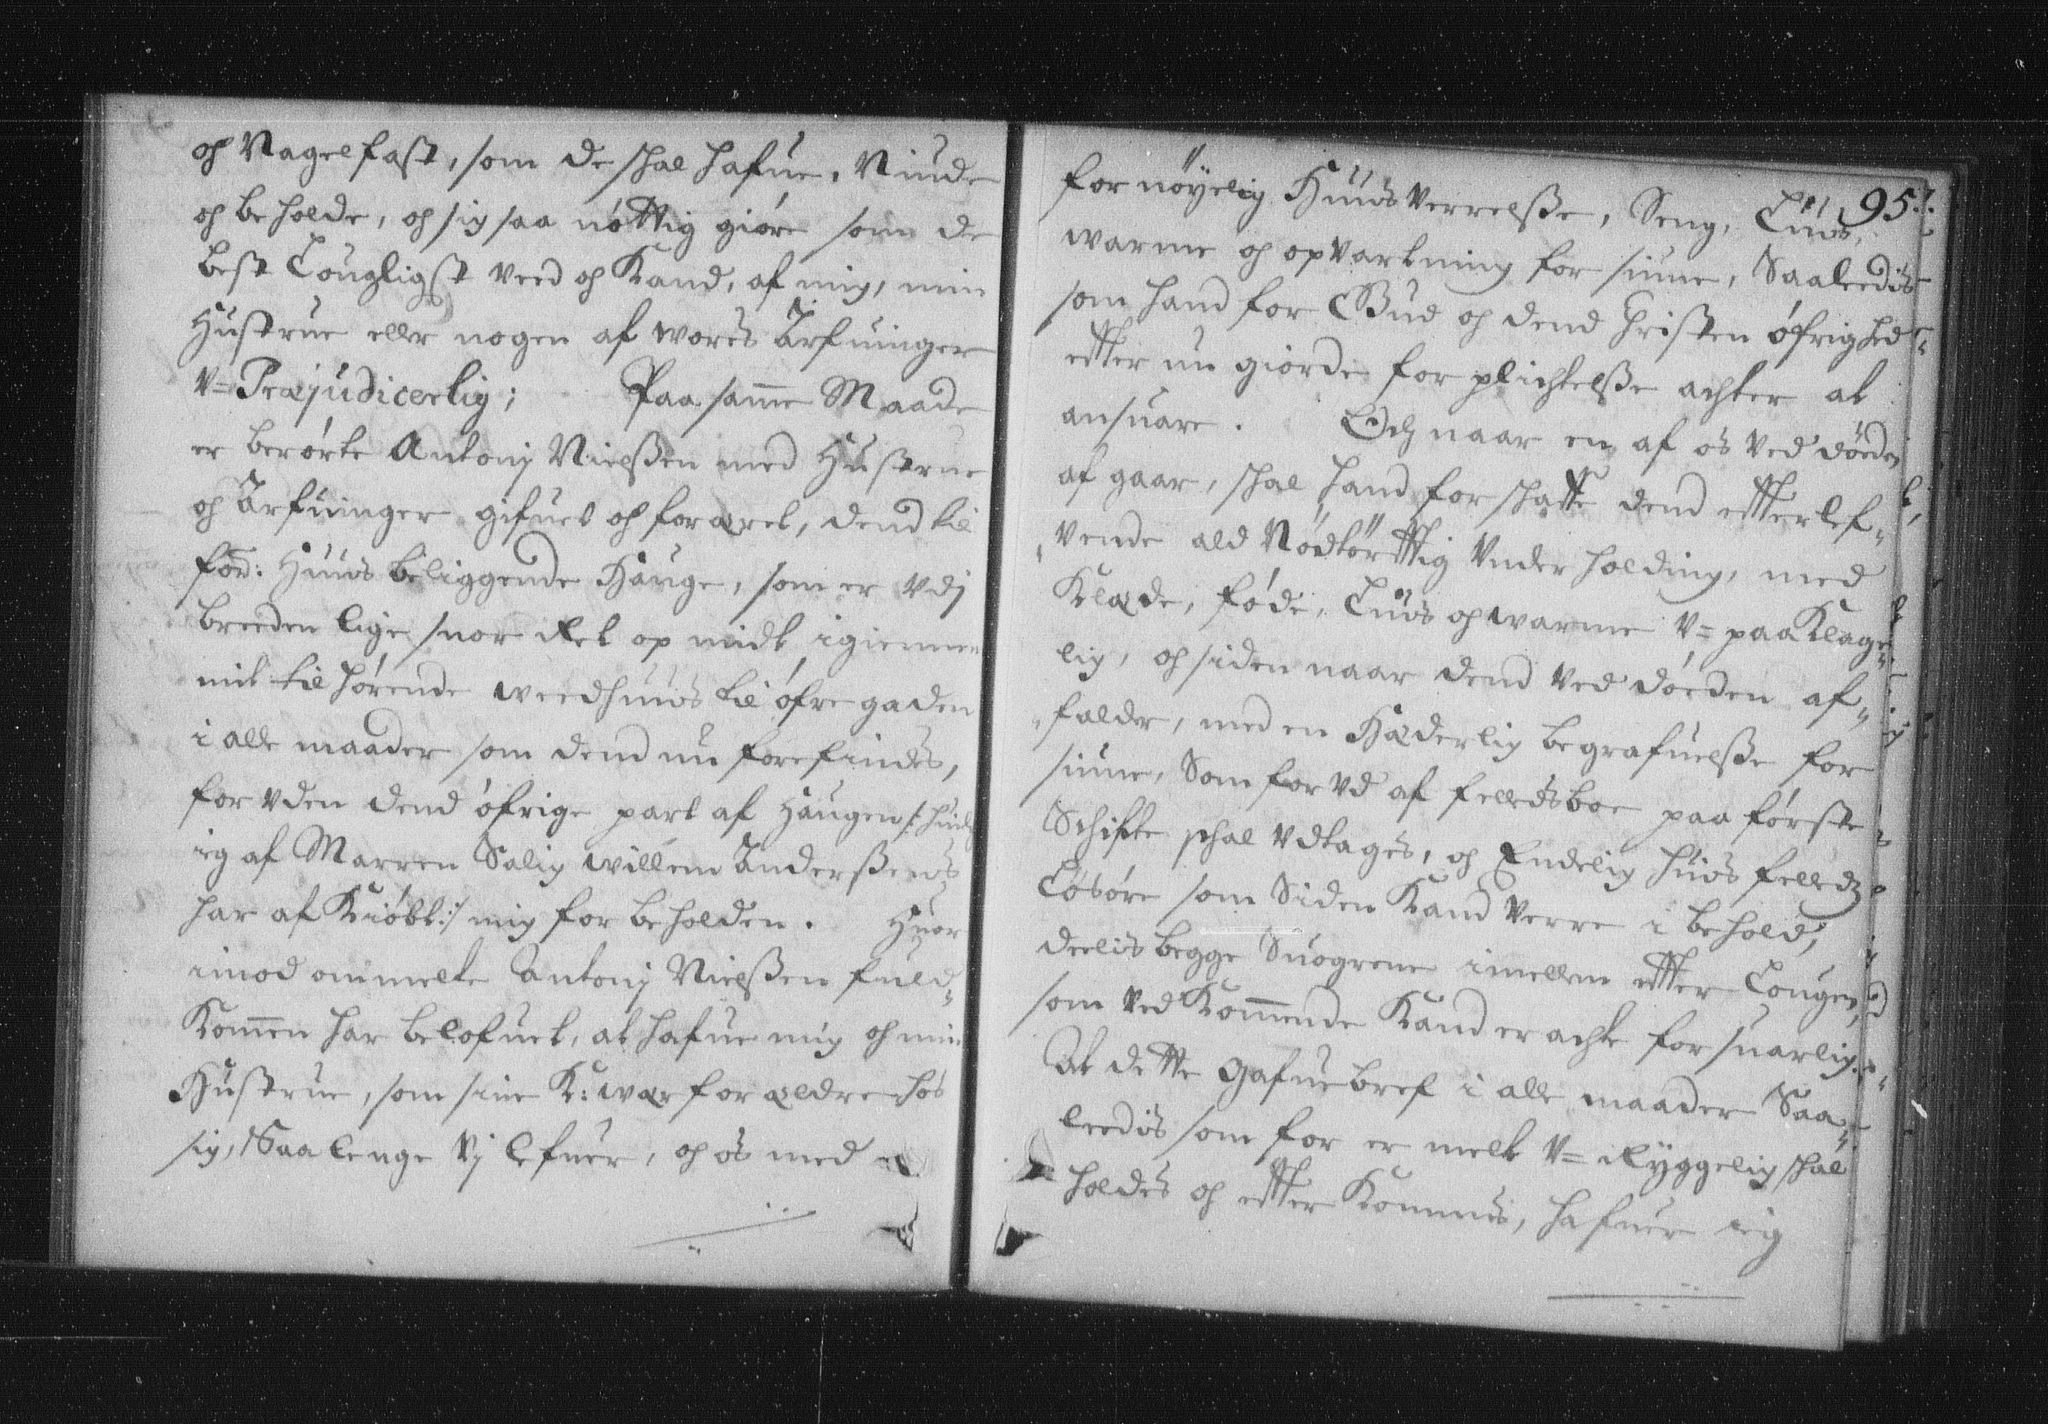 og Nagelfast, som de schal hafue, Niude
og beholde, og sig saa nøttig giøre som de
best Lougligst veed og Kand, af mig, min
Hustrue eller nogen af wores Arfuinger
V=Præjudicerlig; Paa samme Maade
er berørte Antonj Nielßen med Hustrue
og Arfuinger gifuet og foræret, dend til
for: Huus beliggende Hauge, som er vdj
breeden lige snor Ret op midt igiennem
mit tilhørende weedhuus til øfre gaden
i alle maader som dend nu forefindes,
for vden dend øfrige part af Haugen /: huilch
ieg af Marren Salig willem Anderßens
har af Kiøbt :/ mig forbeholden. Huor
imod ommelte Antonj Nielßen fuld-
Kommen har belofuet, at hafue mig og min
Hustrue, som sine K: wær forældre hos
sig, Saalenge Vj lefuer, og os med
95.
fornøyelig Huusverrelße, Seng, Liuus,
warme og opvartning forsiune, Saaledis
som hand for Gud og dend Christen øfrighed
etter nu giorde forplichtelße achter at
ansuare. Och naar en af os ved døeden
af gaar, schal hand forschaffe dend etterlef-
vende ald Nødtørttig Vnderholding, med
Klæde, føde, Liuus og warme V=paaKlage-
lig, og siden naar dend ved døeden af-
falder, med en Hæderlig begrafuelße for
siune, Som forud af fellesboe paa første
Schifte schal vdtages, og Endelig huis felleds
Løsøre som Siden Kand verre i behold,
deelis begge Suogrene imellem etter Lougen,
som vedKommende Kand eracte forsuarlig.
At dette Gafuebref i alle maader Saa-
leedis som før er melt V=Ryggelig schal
holdes og etterKommis, hafuer ieg